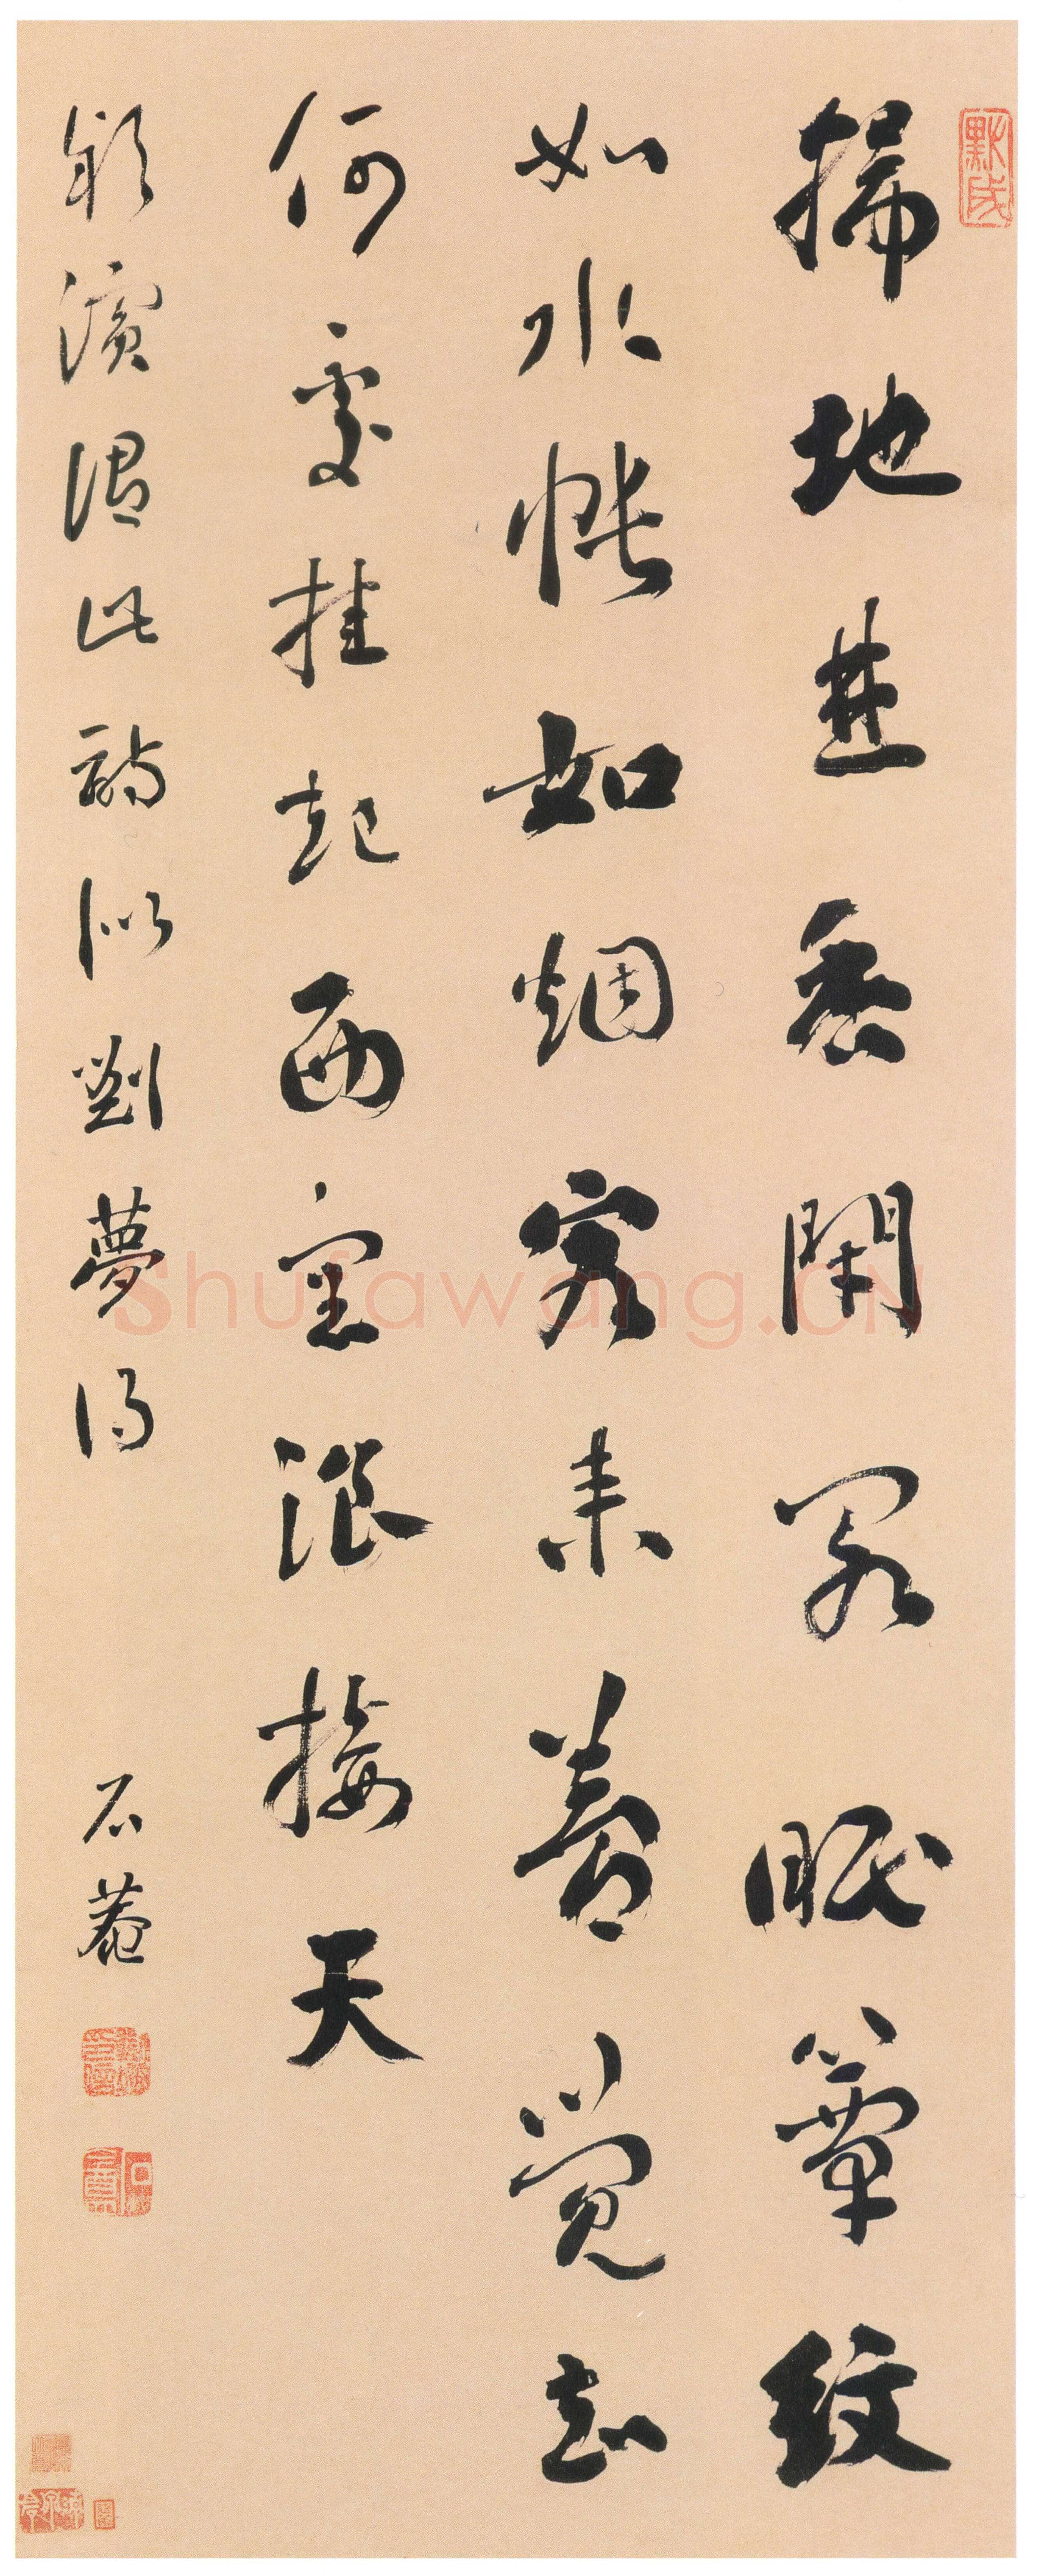 掃地焚香閉閣眠簟紋
如水帳如烟客来夢覺知
何處挂起西窗浪接天
潁濱謂此詩似劉夢得
石菴
Shufawang.CN